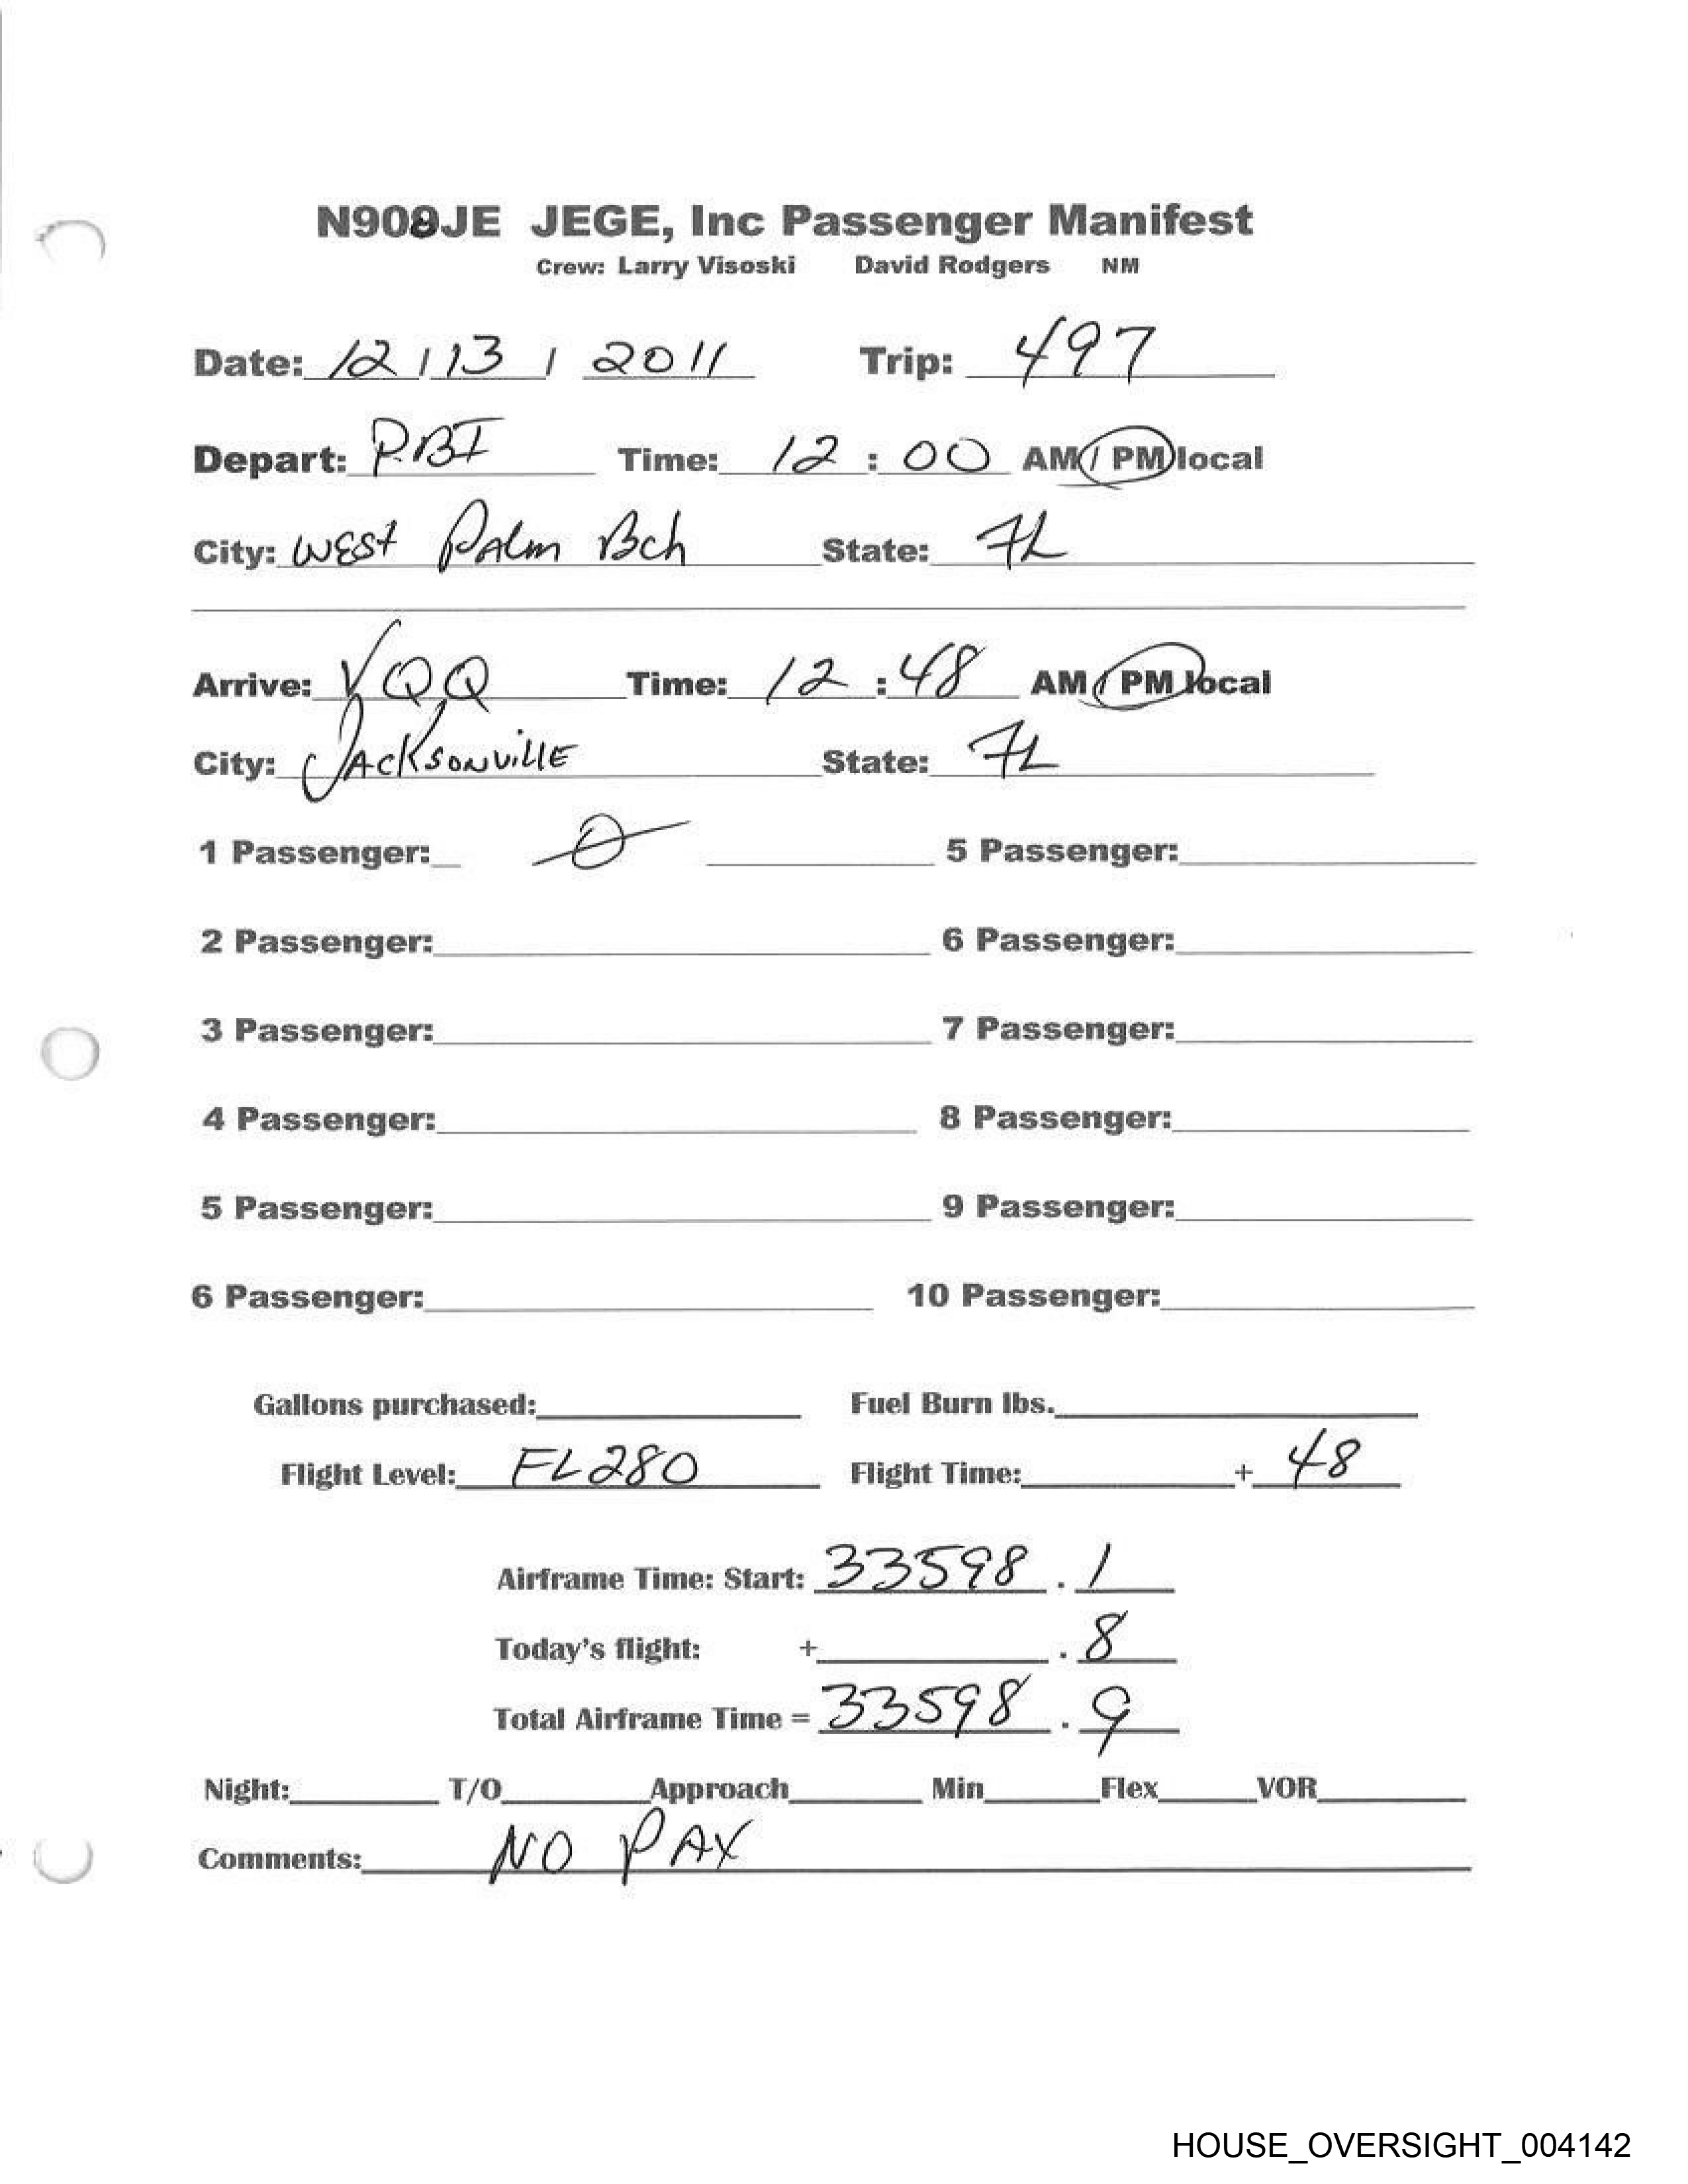 N908JE JEGE, Inc Passenger Manifest
Crew: Larry Visoski David Rodgers NM
Date: 12 / 13 / 2011 Trip: 497
Depart: PBI Time: 12 : 00 AM / PM local
City: WEST PALM Bch State: FL
Arrive: VQQ Time: 12 : 48 AM / PM local
City: JACKSONVILLE State: FL
1 Passenger: 0 5 Passenger:
2 Passenger: 6 Passenger:
3 Passenger: 7 Passenger:
4 Passenger: 8 Passenger:
5 Passenger: 9 Passenger:
6 Passenger: 10 Passenger:
Gallons purchased: Fuel Burn lbs.
Flight Level: FL280 Flight Time: + 48
Airframe Time: Start: 33598 . 1
Today's flight: + . 8
Total Airframe Time = 33598 . 9
Night: T/O Approach Min Flex VOR
Comments: NO PAX
HOUSE_OVERSIGHT_004142